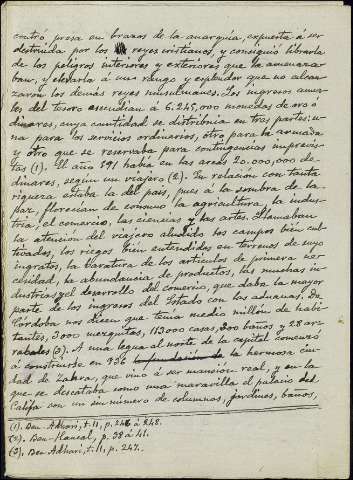 contró presa en brazos de la anarquía, expuesta á ser
destruida por los reyes cristianos, y consiguió librarla
de los peligros interiores y exteriores que la amenaza-
ban, y elevarla á un rango y esplendor que no alcan-
zaron los demás reyes musulmanes. Los ingresos anua-
les del tesoro ascendian á 6.245,000 monedas de oro ó
dinares, cuya cantidad se distribuia en tres partes: u-
na para los servicios ordinarios, otra para la armada
y otro que se reservaba para contingencias imprevis-
tas (1). El año 591 habia en las arcas 20.000,000 de
dinares, segun un viajero (2). En relación con tanta
riqueza estaba la del pais, pues á la sombra de la
paz, florecian de consuno la agricultura, la indus-
tria, el comercio, las ciencias y las artes. Llamaban
la atencion del viajero aludido los campos bien cul-
tivados, los riegos bien entendidos en terrenos de suyo
ingratos, la baratura de los articulos de primera ne-
cesidad, la abundancia de productos, las muchas in-
dustrias y el desarrollo del comercio, que daba la mayor
parte de los ingresos del Estado con las aduanas. De
Córdoba nos dicen que tenia medio millón de habi-
tantes, 3000 mezquitas, 113000 casas, 300 baños y 28 arr-
abales (3). A una legua al norte de la capital comenzó
á construirse en 936 la hermosa ciu-
dad de Zahra, que vino á ser mansion real, y en la
que se descataba como una maravilla el palacio del
Califa con un sin número de columnas, jardines, baños,
(1). Ben-Adhari, t. II, p. 246 á 248.
(2). Ben-Haucal, p. 38 á 41.
(3). Ben Adhari, t. II, p. 247.